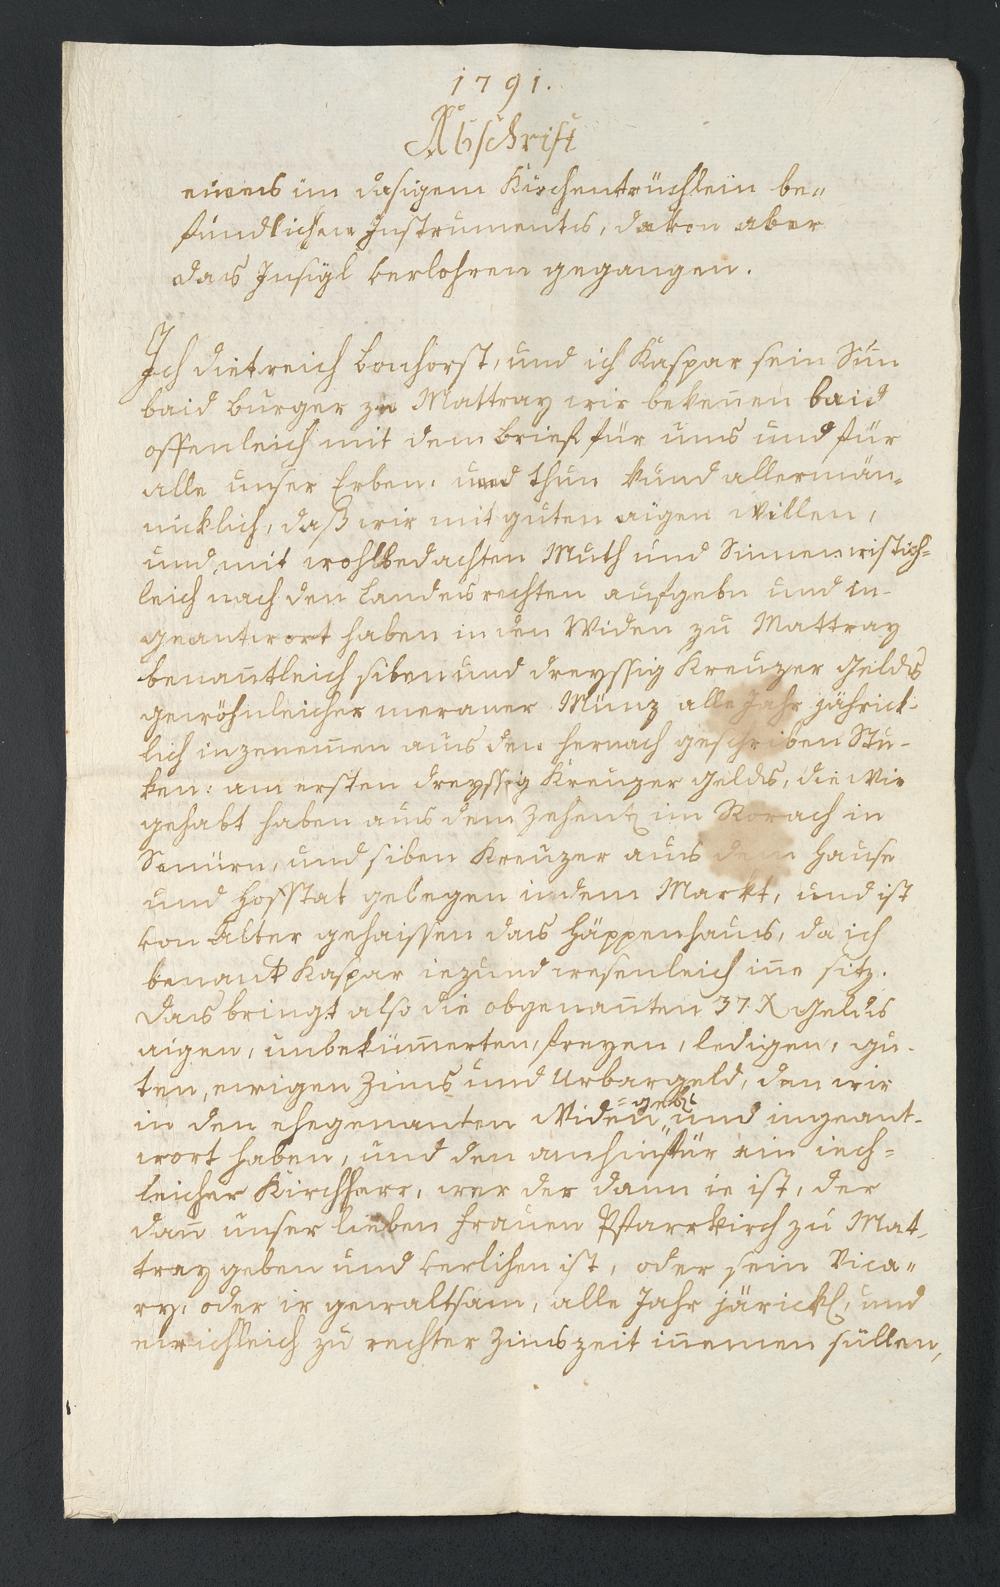 1791.
Abschrift
eines im dasigem Kirchentrüchlein be„
findlichen Instruments, davon aber
das Insigl verlohren gegangen.
Ich dietreich bonhorst, und ich Kaspar sein Sun
baid burger zu Mattray wir bekeñen baid
offenleich mit dem brief für uns und für
alle unser Erben. und thun kund allermän-
nicklich, daß wir mit guten aigen willen,
und mit wohlbedachten Muth und Sinnen wistich=
leich nach den Landes rechten aufgebn und in-
geantwort haben in den Widen zu Mattray
benañtleich siben und dreyssig Kreuzer Gelds
gewöhnleicher meraner Münz alle Jahr jährick-
lich inzenemen aus den hernach geschriben Stu-
ken: am ersten dreyssig Kreuzer gelds, die wir
gehabt haben aus dem Zehent im Rorach in
und siben Kreuzer aus dem hause
und hofstat gelegen in dem Markt, und ist
von Alter gehaissen das Häppenhaus, da ich
benant Kaspar iezund wesenleich iñe sitz.
das bringt also die obgenañten 37 X Gelds
aigen, unbekümerten, freyen, ledigen, gu-
ten, ewigen Zins und Urbargeld, den wir
in den ehegenanten Widen =gebt und ingeant-
wort haben, und den anhin für ein iech=
leicher Kirchharr, wer der dann ie ist, der
dañ unser lieben frauen Pfarrkirch zu Mat-
tray geben und verlihen ist, oder sein Vica„
ry, oder ir gewaltsam, alle Jahr järickl, und
ewichleich zu rechter Zinszeit iñemen süllen,